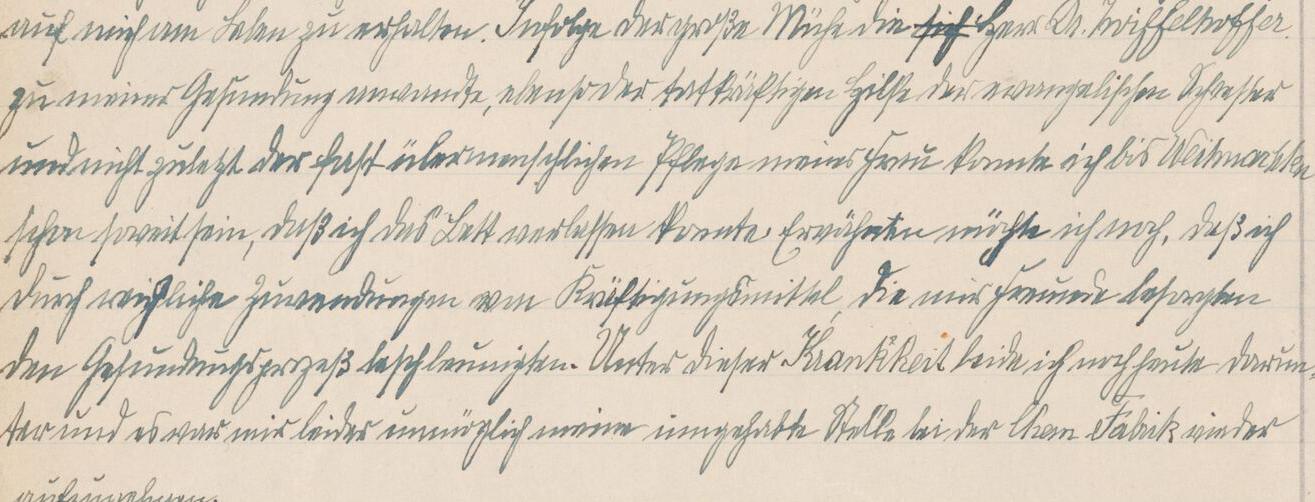 auf mich am Leben zu erhalten. Infolge der große Mühe die sich Herr Dr. Zwiffelhoffer
zu meiner Gesundung anwandte, ebenso der tatkräftigen Hilfe der evangelischen Schwester
und nicht zuletzt der fast übermenschlichen Pflege meiner Frau konnte ich bis Weihnachten
schon soweit sein, daß ich das Bett verlassen konnte. Erwähnen möchte ich noch, daß ich
durch reichliche Zuwendungen von Kräftigungsmittel, die mir Freunde besorgten
den Gesundungsprozeß beschleunigten. Unter dieser Krankheit leide ich noch heute darun-
ter und es war mir leider unmöglich meine inngehabte Stelle bei der Chem Fabrik wieder
aufzunehmen.